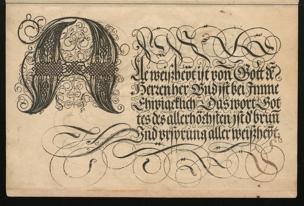 Alle weißheyt ist von Gott dē
Herren her Vnd ist bei Imme
Ewigklich Das wort Got
tes des allerhöchsten ist d' brun
Vnd vrsprung aller weißheyt.